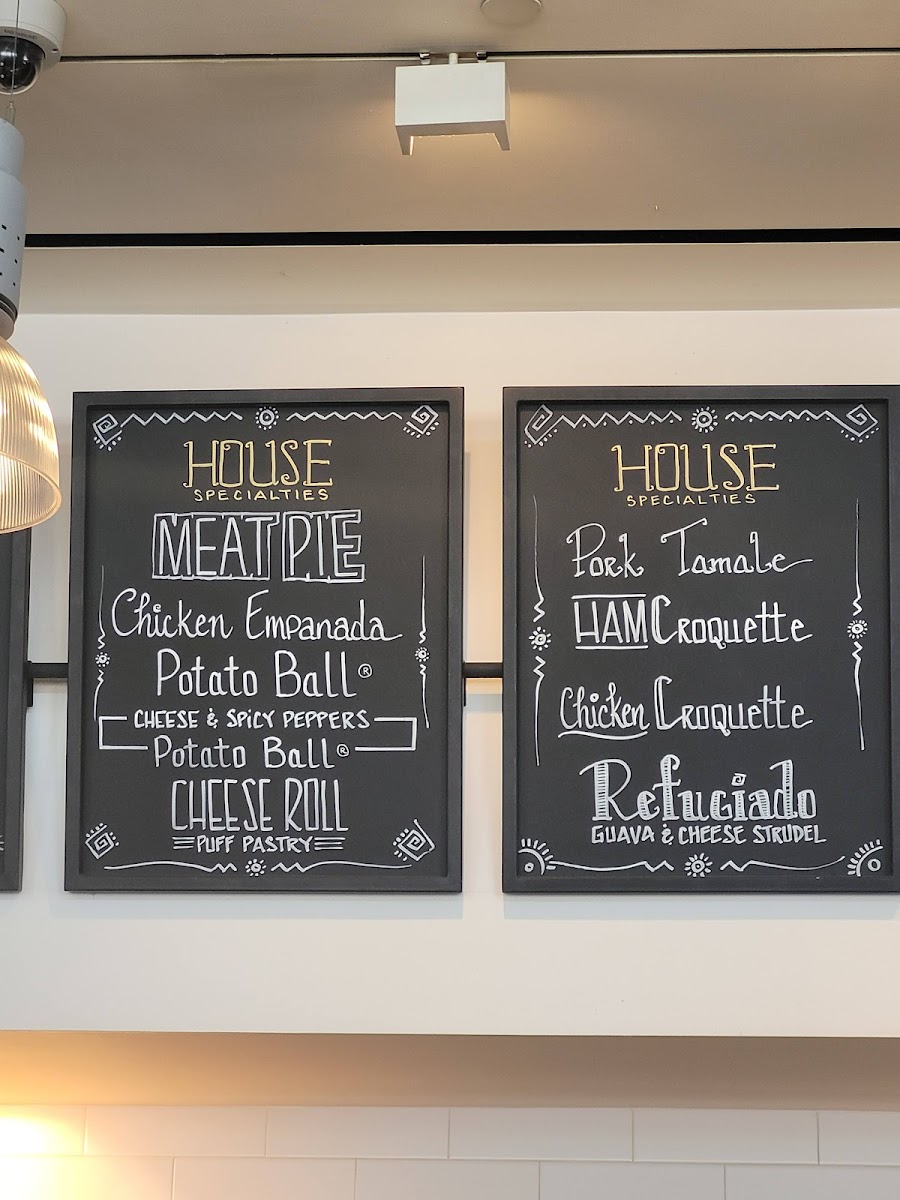 HOUSE
SPECIALTIES
MEAT PIE
Chicken Empanada
Potato Ball®
CHEESE & SPICY PEPPERS
Potato Ball®
CHEESE ROLL
PUFF PASTRY
HOUSE
SPECIALTIES
Pork Tamale
HAM CROQUETTE
Chicken CROQUETTE
Refugiado
GUAVA & CHEESE STRUDEL